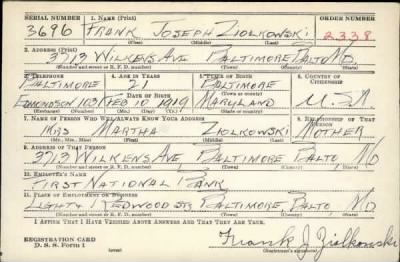 SERIAL NUMBER 1. NAME (Print) ORDER NUMBER
3696 FRANK JOSEPH ZIOLKOWSKI 2338
(First) (Middle) (Last)
2. ADDRESS (Print)
3713 WILKENS AVE BALTIMORE BALTO MD.
(Number and street or R. F. D. number) (Town) (County) (State)
3. TELEPHONE 4. AGE IN YEARS 5. PLACE OF BIRTH 6. COUNTRY OF CITIZENSHIP
BALTIMORE 21 BALTIMORE
DATE OF BIRTH
EDMONDSON 1031 FEB 10 1919 MARYLAND U.S.A
(Exchange) (Number) (Mo.) (Day) (Yr.) (State or country)
7. NAME OF PERSON WHO WILL ALWAYS KNOW YOUR ADDRESS 8. RELATIONSHIP OF THAT PERSON
MRS MARTHA ZIOLKOWSKI MOTHER
(Mr., Mrs., Miss) (First) (Middle) (Last)
9. ADDRESS OF THAT PERSON
3713 WILKENS AVE BALTIMORE BALTO, MD
(Number and street or R. F. D. number) (Town) (County) (State)
10. EMPLOYER'S NAME
FIRST NATIONAL BANK
11. PLACE OF EMPLOYMENT OR BUSINESS
LIGHT & REDWOOD STS BALTIMORE, BALTO, MD
(Number and street or R. F. D. number) (Town) (County) (State)
I AFFIRM THAT I HAVE VERIFIED ABOVE ANSWERS AND THAT THEY ARE TRUE.
REGISTRATION CARD
D. S. S. Form 1
Frank J. Ziolkowski
(Registrant's signature)